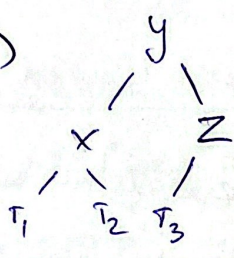 )
y
x z
T1 T2 T3